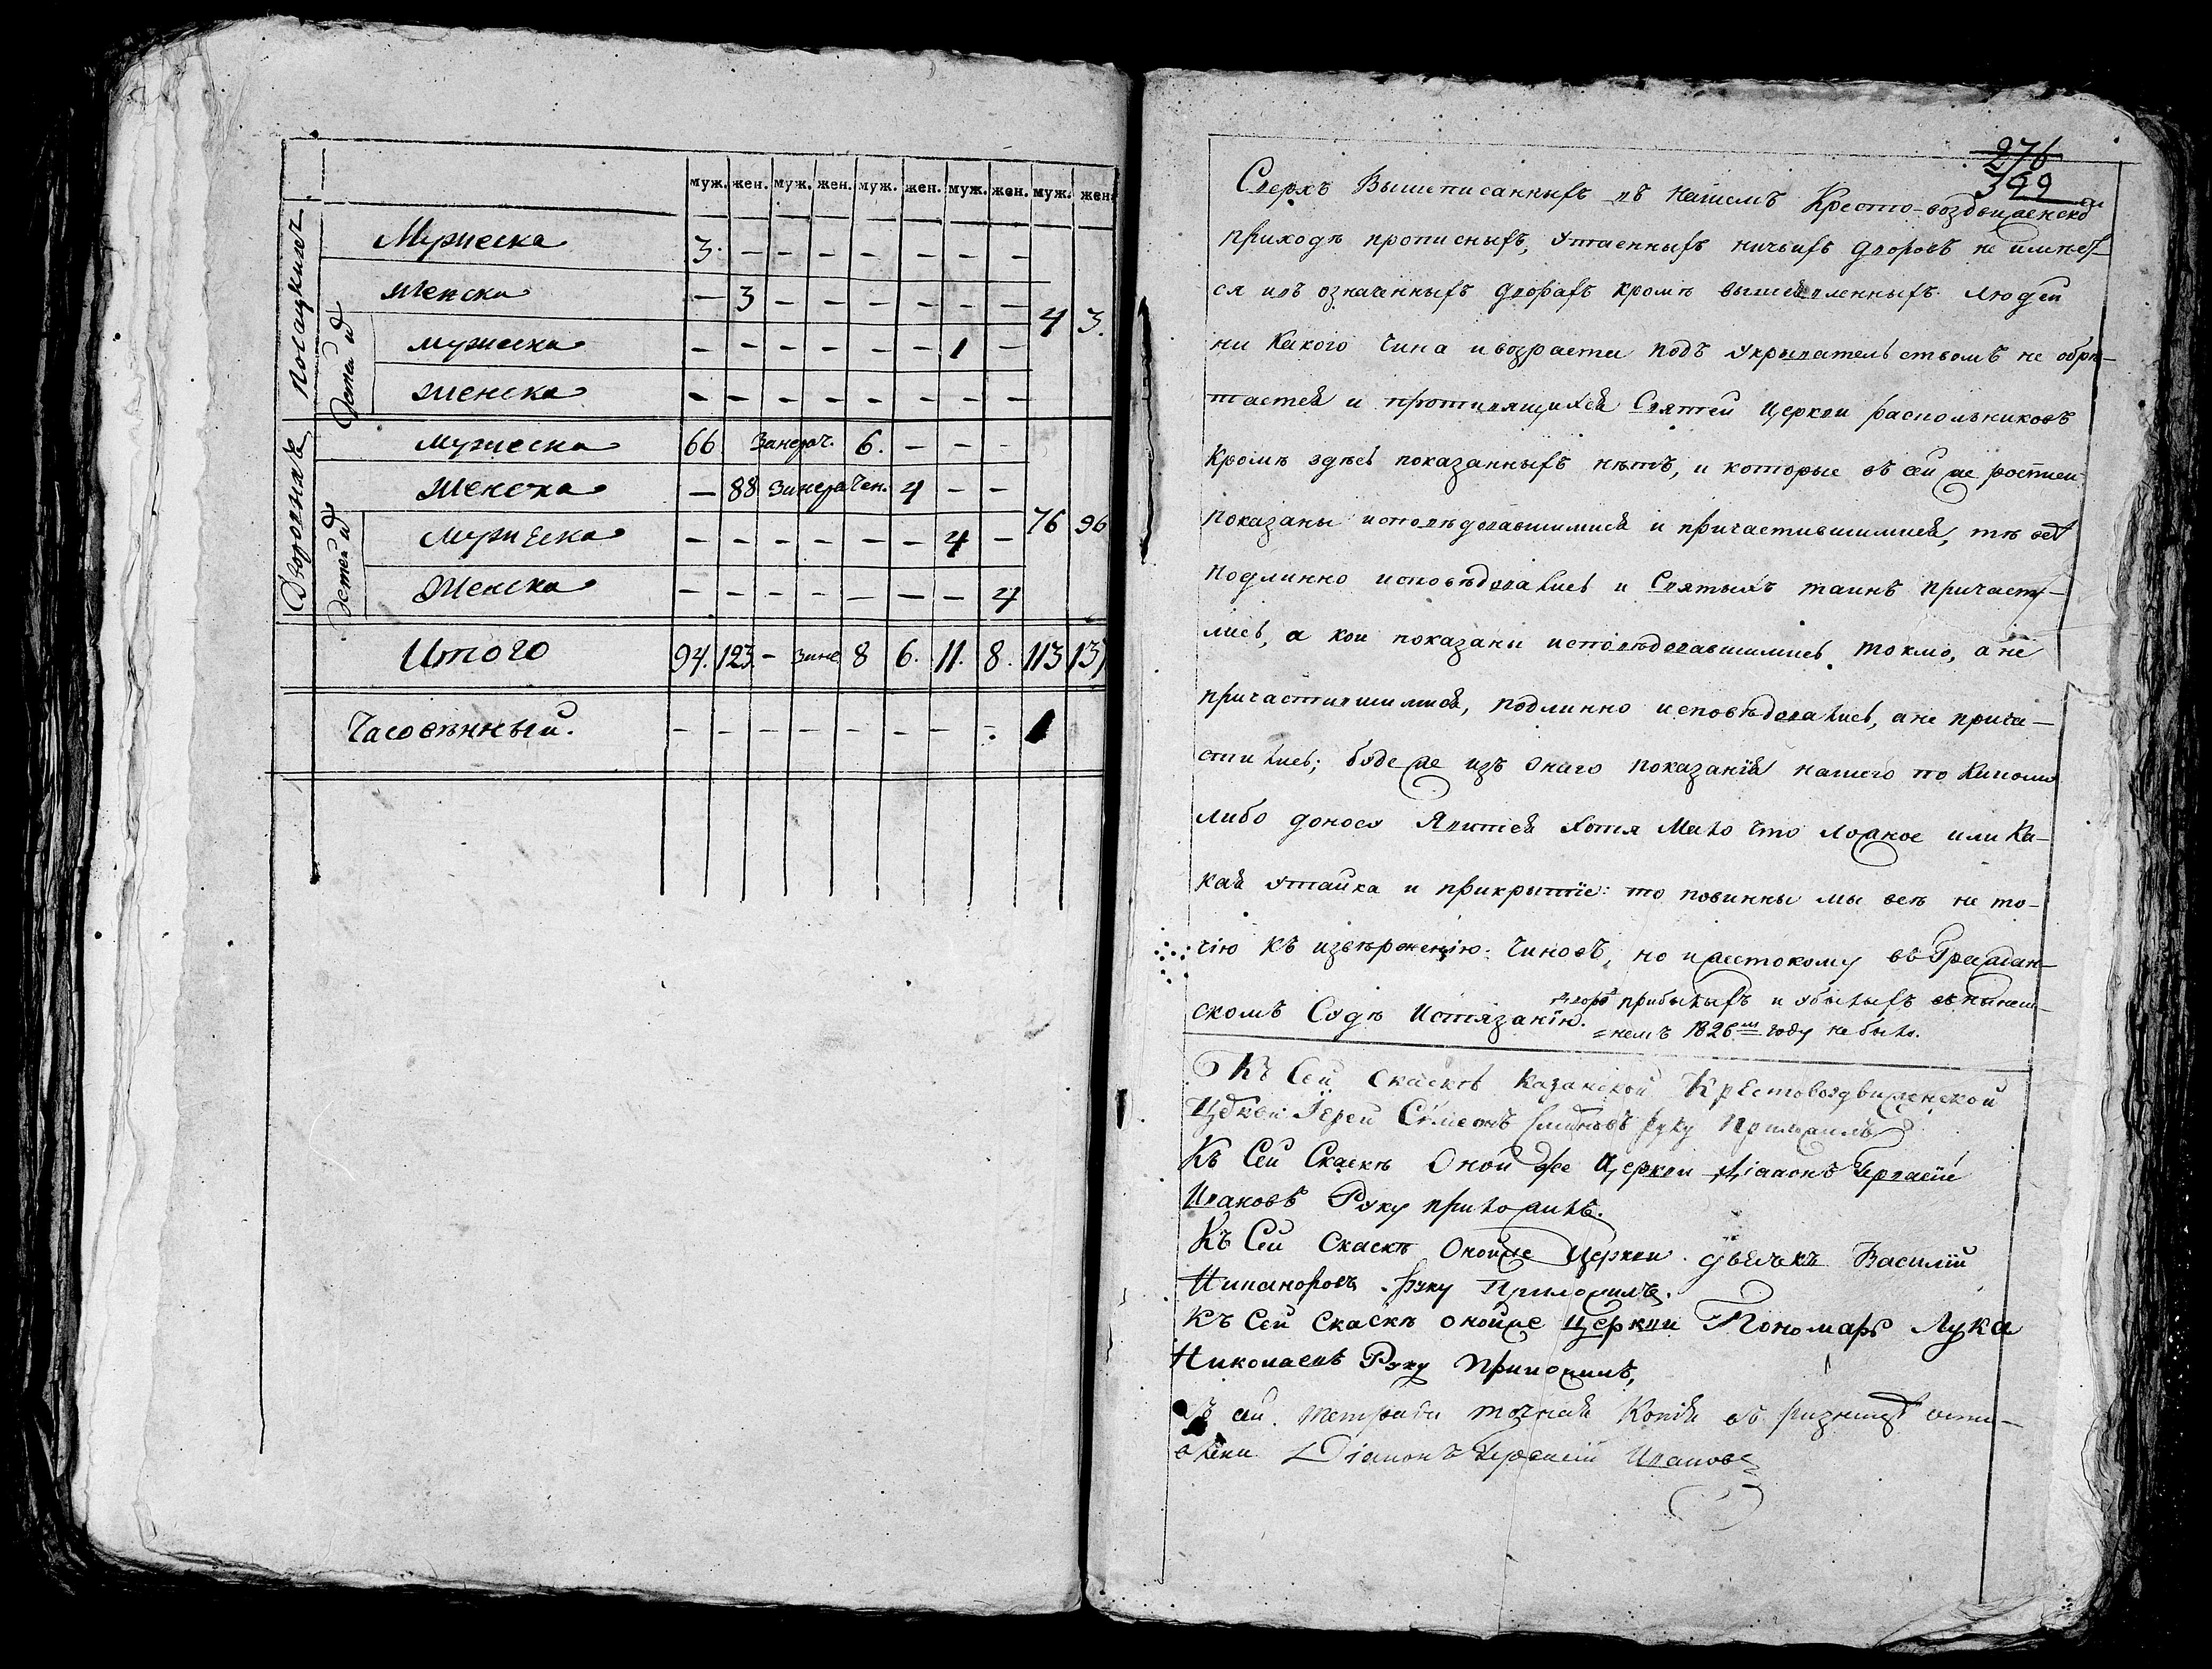 муж. жен. муж. жен. муж. жен. муж. жен. муж. жен.
Посацкихъ
Мужеска 3. – – – – – – –
Женска – 3 – – – – – – 4 3.
детей ихъ
мужеска – – – – – – 1 –
женска – – – – – – – –
Дворовыхъ
мужеска 66 6. – – –
Женска – 88 4 – – 76 96
детей ихъ
мужеска – – – – – – 4 –
Женска – – – – – – – 4
Итого 94. 123. – 8 6. 11. 8. 113 137
Часовенный. – – – – – – – – 1
276
399
Сверхъ Вышеписанныхъ въ нашемъ Кресто-воздвиженско
приходѣ прописныхъ, утаенныхъ ничьихъ дворовъ не имѣет-
ся и въ означенныхъ дворахъ кромѣ людей
ни какого чина и возраста подъ укрывательствомъ не обрѣ-
тается и противящихся Святей церкви раскольниковъ
кромѣ здѣсь показанныхъ нѣтъ, и которые въ сей же росписи
показаны исповѣдовавшимися и причастившимися, тѣ всѣ
подлинно исповѣдовались и Святыхъ таинъ причасти-
лись, а кои показаны исповѣдовавшимись токмо, а не
причастившимися, подлинно исповѣдовались, а не прича-
стились; буде же изъ онаго показанія нашего по какому
либо доносу Явится хотя мало что ложное или ка-
кая утайка и прикрытіе: то повинны мы всѣ не то-
чію къ изверженію чиновъ, но и жестокому въ Граждан-
скомъ Судѣ Истязанію. дворовъ прибылыхъ и убылыхъ въ нынеш-
=немъ 1826м году не было.
Къ Сей скаскѣ Казанской Крестовоздвиженской
Церкви Іерей Симеонъ руку приложилъ
Къ Сей Скаскѣ Оной же Церкви Діаконъ Гервасій
Ивановъ Руку приложилъ.
Къ Сей Скаскѣ Онойже Церкви дьячкъ Василій
Никаноровъ руку Приложилъ.
Къ Сей Скаскѣ онойже Церкви Пономарь Лука
Николаевъ Руку приложилъ,
съ сей тетради точная Копія въ ризницѣ остав-
лена Діаконъ Гервасій Ивановъ